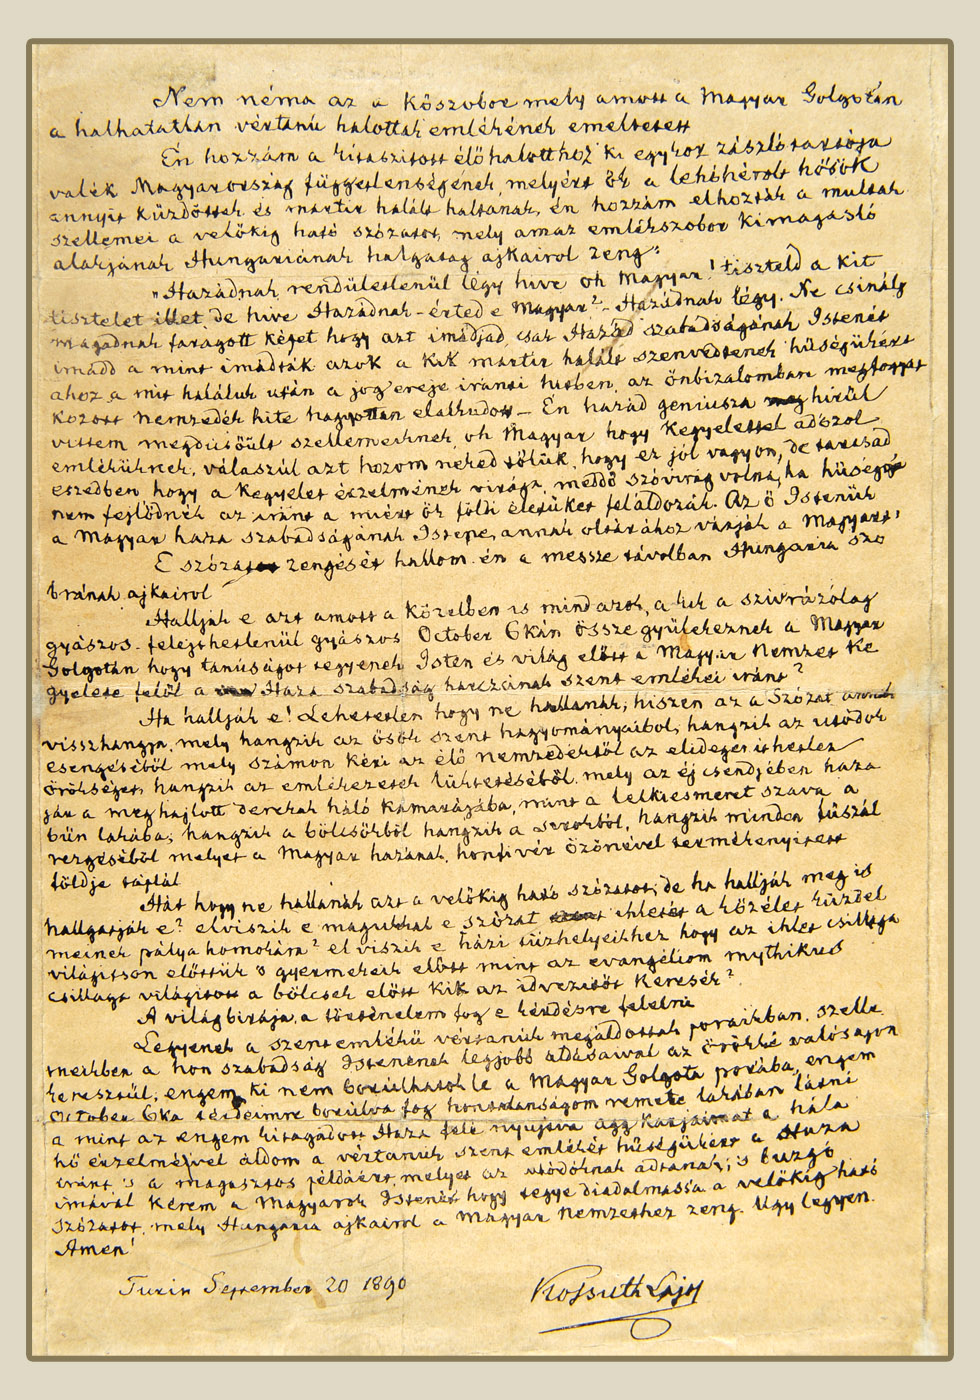 Nem néma az a kőszobor mely amott a Magyar Golgotán
a halhatatlan vértanú halottak emlékének emeltetett
Én hozzám a kitaszitott élő halotthoz ki egykor zászló tartója
valék Magyarország függetlenségének, melyért ők a lehóhérolt hősök
annyit küzdöttek és mártir halált haltanak, én hozzám elhozták a multak
szellemei a velőkig ható szózatot, mely amaz emlékszobor kimagasló
alakjának Hungariának halgatag ajkairol zeng"
"Hazádnak rendületlenül légy hive oh Magyar! tiszteld a kit
tisztelet illet de hive Hazádnak - érted e Magyar? - Hazádnak légy. Ne csinálj
magadnak faragott képet hogy azt imádjad csak Hazád szabadságának Istenét
imádd a mint imádták azok a kik martir halált szenvedtenek hűségükért
ahoz a mit haláluk után a jog ereje iránti hitben, az önbizalomban megfogyat
kozott nemzedék hite hagyottan elalkudott - Én hazád geniusza hirül
vittem megdicsőült szellemeiknek, oh Magyar hogy Kegyelettel adózol
emléküknek, válaszúl azt hozom néked tőlük, hogy ez jól vagyon, de tartsad
eszedben, hogy a kegyelet érzelmének virága, meddő szóvirág volna, ha hűséggé
nem fejlődnék az iránt a miért ők földi életüket feláldozák. Az ő Istenük
a Magyar haza szabadságának Istene, annak oltárához várják a Magyart"
E szózat zengését hallom én a messze távolban Hungaria szo
brának ajkairol
Hallják e azt amott a közelben is mind azok, a kik a szivrázólag
gyászos, felejthetlenül gyászos October 6kán össze gyülekeznek a Magyar
Golgotán hogy tanúságot tegyenek Isten és világ előtt a Magyar Nemzet Ke
gyelete felöl a Haza szabadság harczának szent emlékei iránt?
Ha hallják e! Lehetetlen hogy ne hallanák, hiszen az a Szózat annak
visszhangja, mely hangzik az ősök szent hagyományaibol, hangzik az utódok
esengéséből mely számon kéri az élő nemzedéktől az elidegenithetlen
örökséget, hangzik az emlékezetek lüktetéséből, mely az éj csendjében haza
jár a meghajlott derekak háló kamarájába, mint a lelkiesmeret szava a
bün lakába; hangzik a bölcsőkből hangzik a sirokból, hangzik minden fűszál
rezgéséből melyet a Magyar hazának, honfivér özönével termékenyitett
földje táplál
Hát hogy ne hallanák azt a velőkig ható szózatot; de ha hallják meg is
hallgatják e? elviszik e magukkal e szózat ihletét a közélet küzdel
meinek pálya homokára? el viszik e házi tűzhelyeikhez hogy az ihlet csillaga
világitson előttük 's gyermekeik előtt mint az evangéliom mythikus
csillaga világitott a bölcsek előtt kik az idvezitőt keresék?
A világbirája, a történelem fog e kérdésre felelni
Legyenek a szent emlékű vértanúk megáldottak poraikban, szelle
meikben a hon szabadság Istenének legjobb áldásaival az örökké valóságon
keresztül; engem, ki nem borúlhatok le a Magyar Golgota porába, engem
October 6ka térdeimre borúlva fog hontalanságom remete lakában látni
a mint az engem kitagadott Haza felé nyujtva agg karjaimat a hála
hő érzelmeivel áldom a vértanúk szent emlékét hűségükért a Haza
iránt 's a magasztos példáért, melyet az utódoknak adtanak; 's buzgó
imával kérem a Magyarok Istenét hogy tegye diadalmassá a velőkig ható
szózatot, mely Hungaria ajkairol a Magyar Nemzethez zeng. Ugy legyen.
Amen!
Turin September 20 1890
Kossuth Lajos